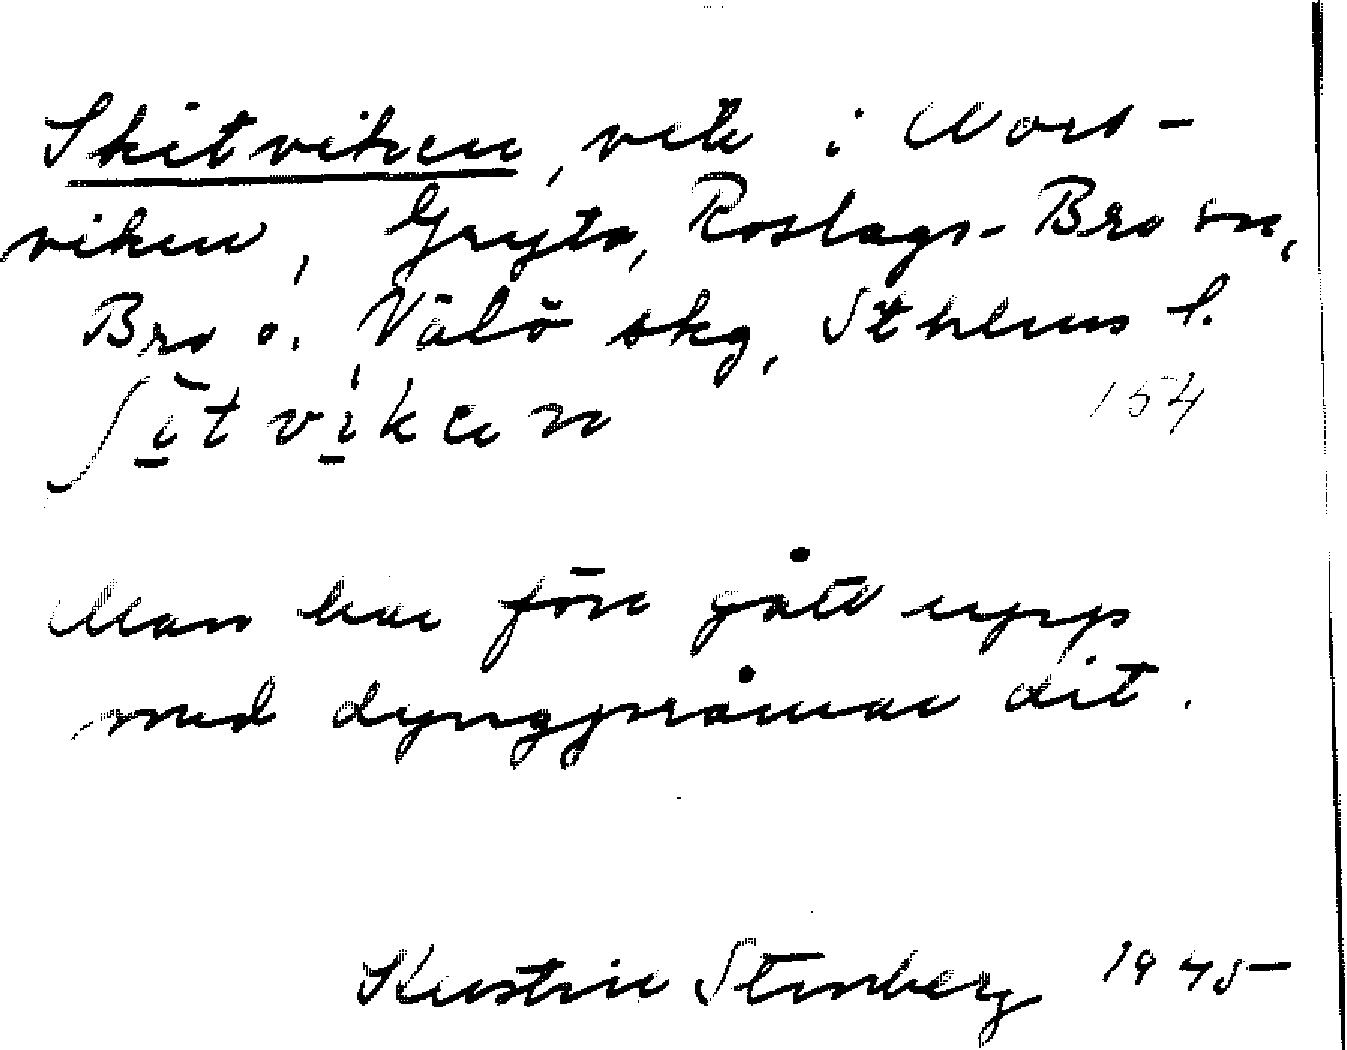 Skitviken, vik i Norr-
viken, Gryta, Roslags-Bro sn,
Bro o. Vätö skg, Sthlms l.
154
ʃi̱tvi̱ken
Man har förr gått upp
med dyngpråmar dit.
Kerstin Stenberg 1945